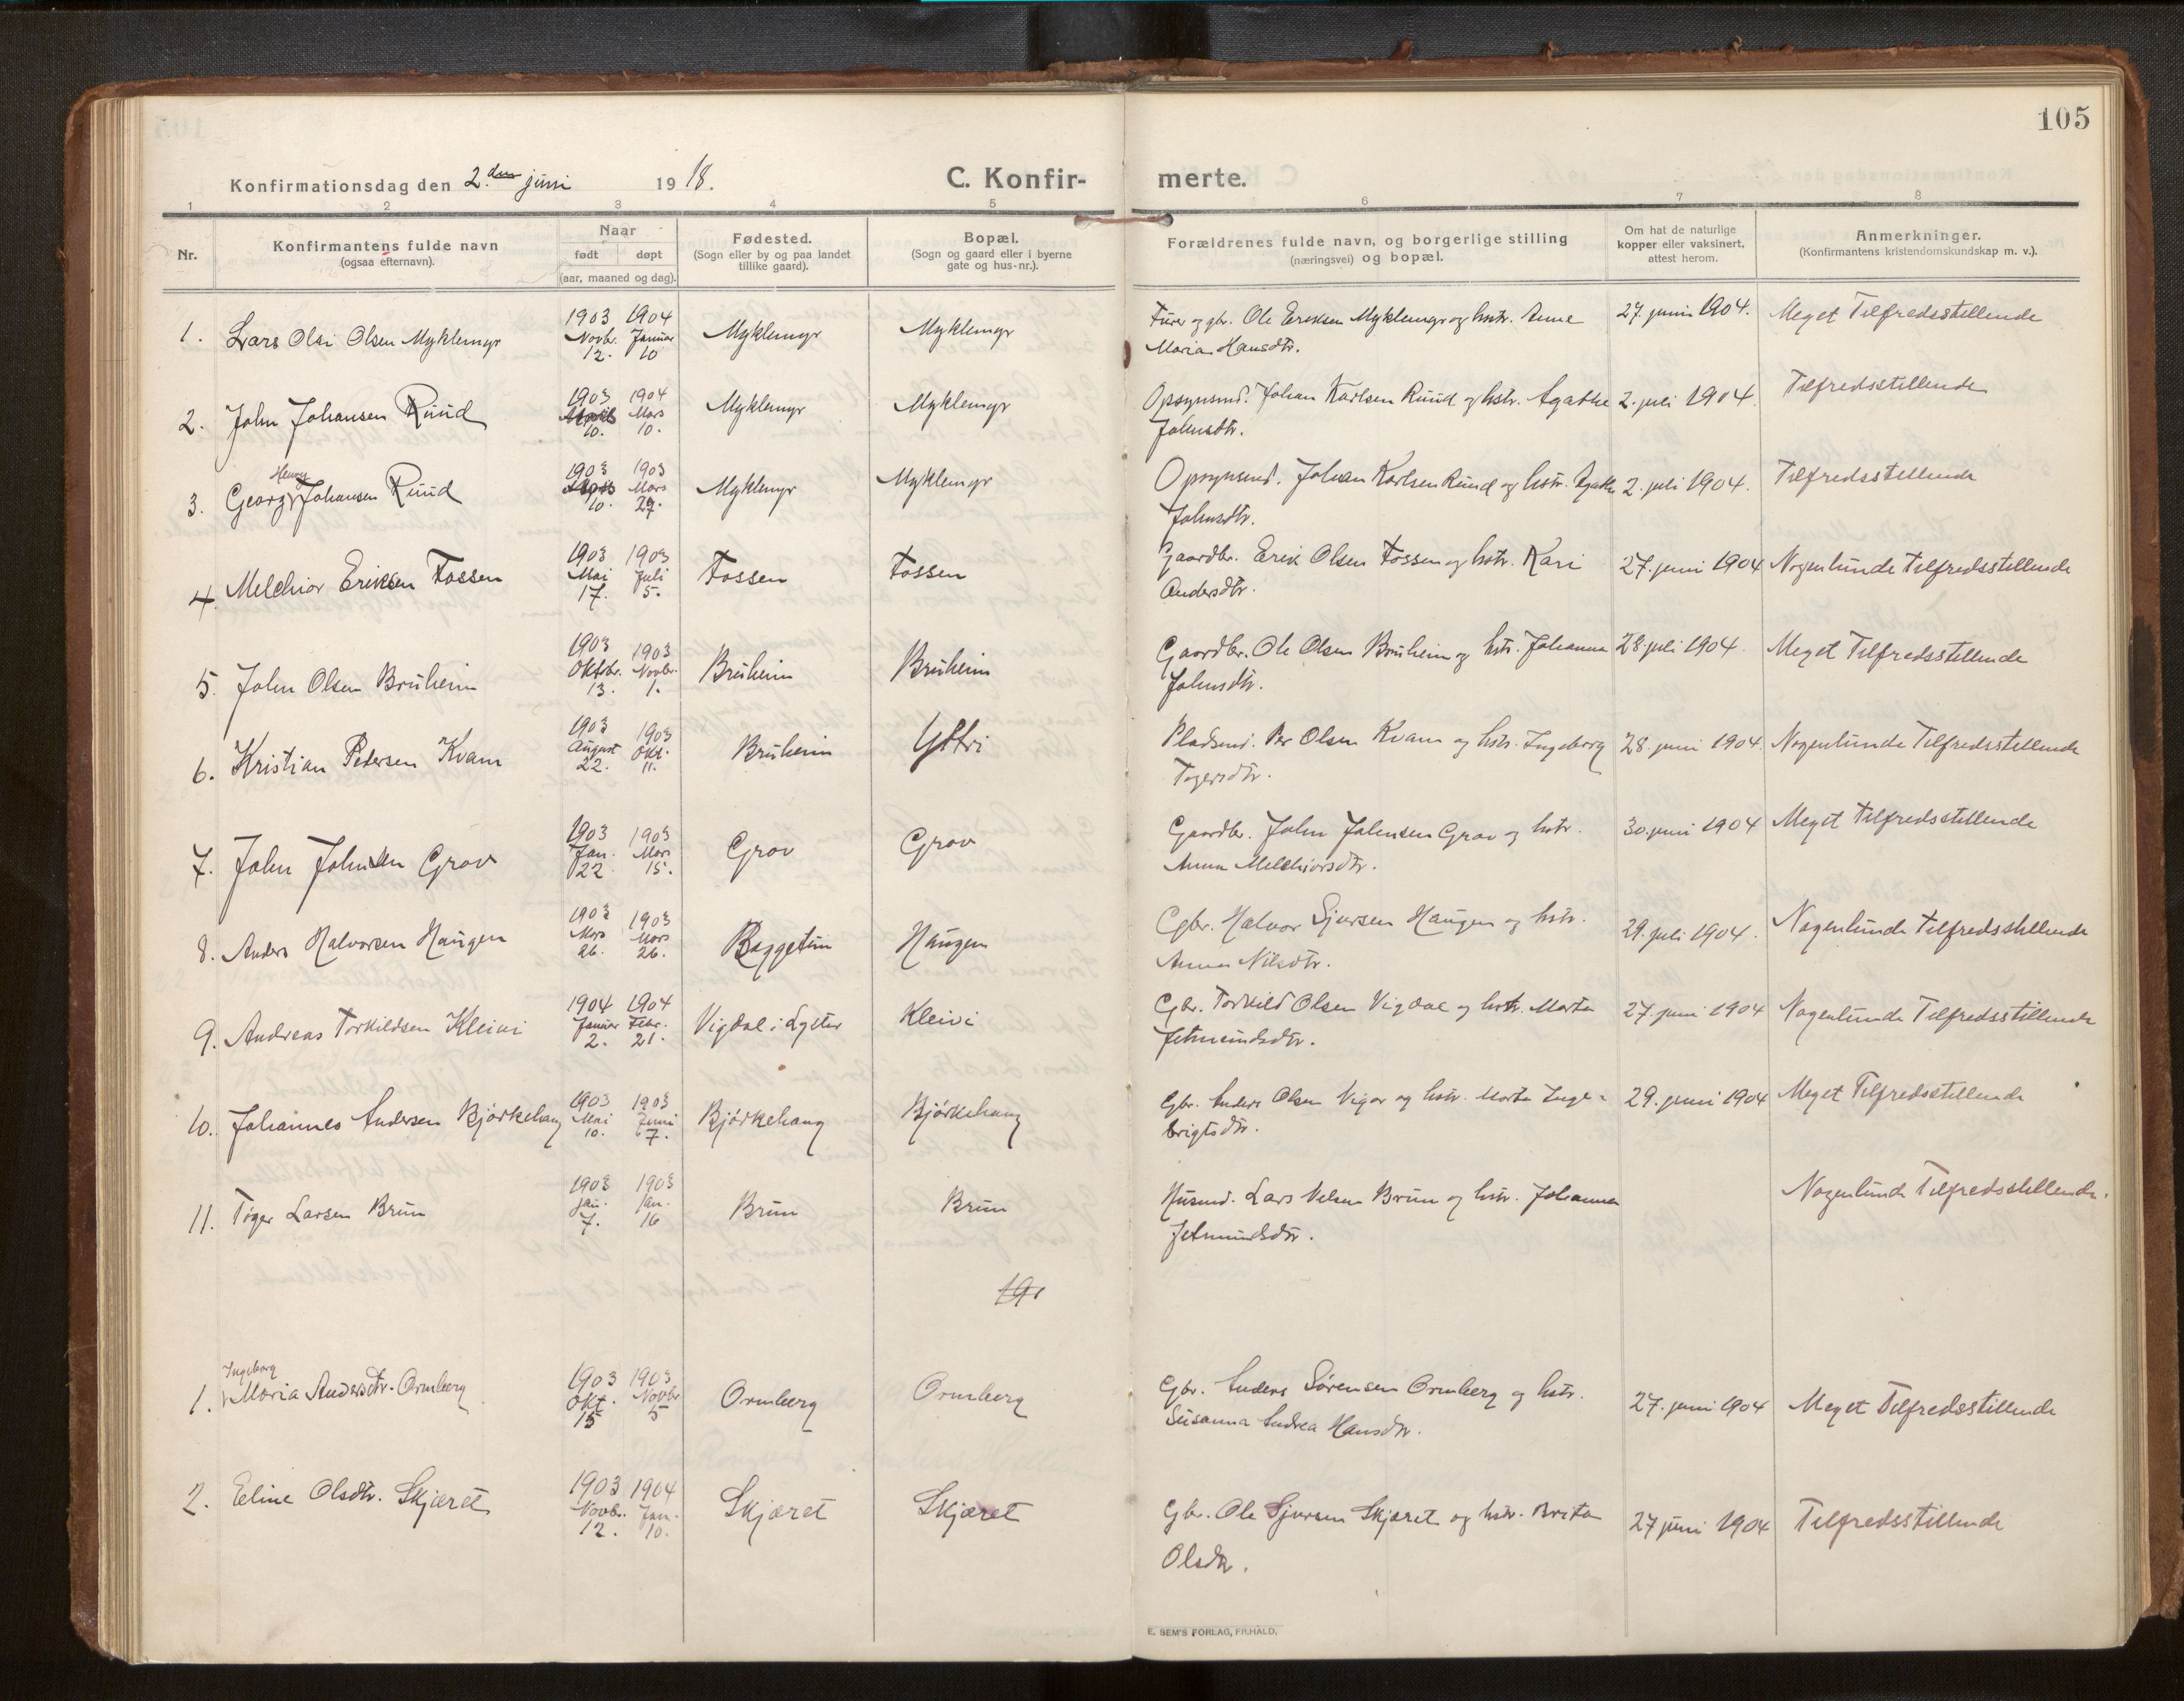 105
Konfirmationsdag den 2.den juni 1918. C. Konfir- merte.
1 2 3 4 5 6 7 8
Nr.
Konfirmantens fulde navn
(ogsaa efternavn).
Naar
født døpt
(aar, maaned og dag).
Fødested.
(Sogn eller by og paa landet
tillike gaard).
Bopæl.
(Sogn og gaard eller i byerne
gate og hus-nr.).
Forældrenes fulde navn, og borgerlige stilling
(næringsvei) og bopæl.
Om hat de naturlige
kopper eller vaksinert,
attest herom.
Anmerkninger.
(Konfirmantens kristendomskundskap m. v.).
1903 1904
1. Lars Olai Olsen Myklemyr Novbr. Januar Myklemyr Myklemyr og gbr. Ole Eriksen Myklemyr og hstr. Anne 27. juni 1904. Meget Tilfredsstillende
12. 10 Maria Hansdtr.
1903 1904
2. John Johansen Ruud Mars Myklemyr Myklemyr Opsynsmd. Johan Karlsen Ruud og hstr. Agathe 2. juli 1904. Tilfredsstillende
10. 10. Johnsdtr.
Henry 1903 1903
3. Georg Johansen Ruud Mars Myklemyr Myklemyr Opsynsmd. Johan Karlsen Ruud og hstr. Agathe 2. juli 1904. Tilfredsstillende
10. 29. Johnsdtr.
1903 1903
4. Melchior Eriksen Fossen Mai Juli Fossen Fossen Gaardbr. Erik Olsen Fossen og hstr. Kari 27. juni 1904 Nogenlunde Tilfredsstillende
17. 5. Andersdtr.
1903 1903
5. John Olsen Bruheim Oktbr. Novbr. Bruheim Bruheim Gaardbr. Ole Olsen Bruheim og hstr. Johanna 28 juli 1904. Meget Tilfredsstillende
13. 1. Johnsdtr.
1903 1903
6. Kristian Pedersen Kvam August Okt. Bruheim Yttri Pladsmd. Per Olsen Kvam og hstr. Ingeborg 28. juni 1904. Nogenlunde Tilfredsstillende
22. 11. Tøgersdtr.
1903 1903
7. John Johnsen Grov Jan. Mars Grov Grov Gaardbr. John Johnsen Grov og hstr. 30. juni 1904 Meget Tilfredsstillende
22 15. Anna Melchiorsdtr.
1903 1903
8. Anders Halvorsen Haugen Mars Mars Haugen Gbr. Halvor Sjursen Haugen og hstr. 29. juli 1904. Nogenlunde Tilfredsstillende
26. 26. Anna Nilsdtr.
1904 1904
9. Andreas Torkildsen Kleivi Januar Febr. Vigdal i Lyster Kleivi Gbr. Torkild Olsen Vigdal og hstr. Marta 27. juni 1904 Nogenlunde Tilfredsstillende
2. 21. Jetmundsdtr.
1903 1903
10. Johannes Andersen Bjørkehaug Mai Juni Bjørkehaug Bjørkehaug Gbr. Anders Olsen og hstr. Marta Inge- 29. juni 1904 Meget Tilfredsstillende
10. 7. brigtsdtr.
1903 1903
11. Tøger Larsen Brun Jan. Jan. Brun Brun Husmd. Lars Brun og hstr. Johanna Nogenlunde Tilfredsstillende.
7. 16 Jetmundsdtr.
19
Ingeborg 1903 1903
1. Maria Andersdtr. Ormberg Okt. Novbr Ormberg Ormberg Gbr. Anders Sørensen Ormberg og hstr. 27. juni 1904 Meget Tilfredsstillende
15 5 Susanna Andrea Hansdtr.
1903 1904
2. Eline Olsdtr. Skjæret Novbr. Jan. Skjæret Skjæret Gbr. Ole Sjursen Skjæret og hstr. Brita 27 juni 1904 Tilfredsstillende
12. 10. Olsdtr.
E. SEM'S FORLAG, FR.HALD.